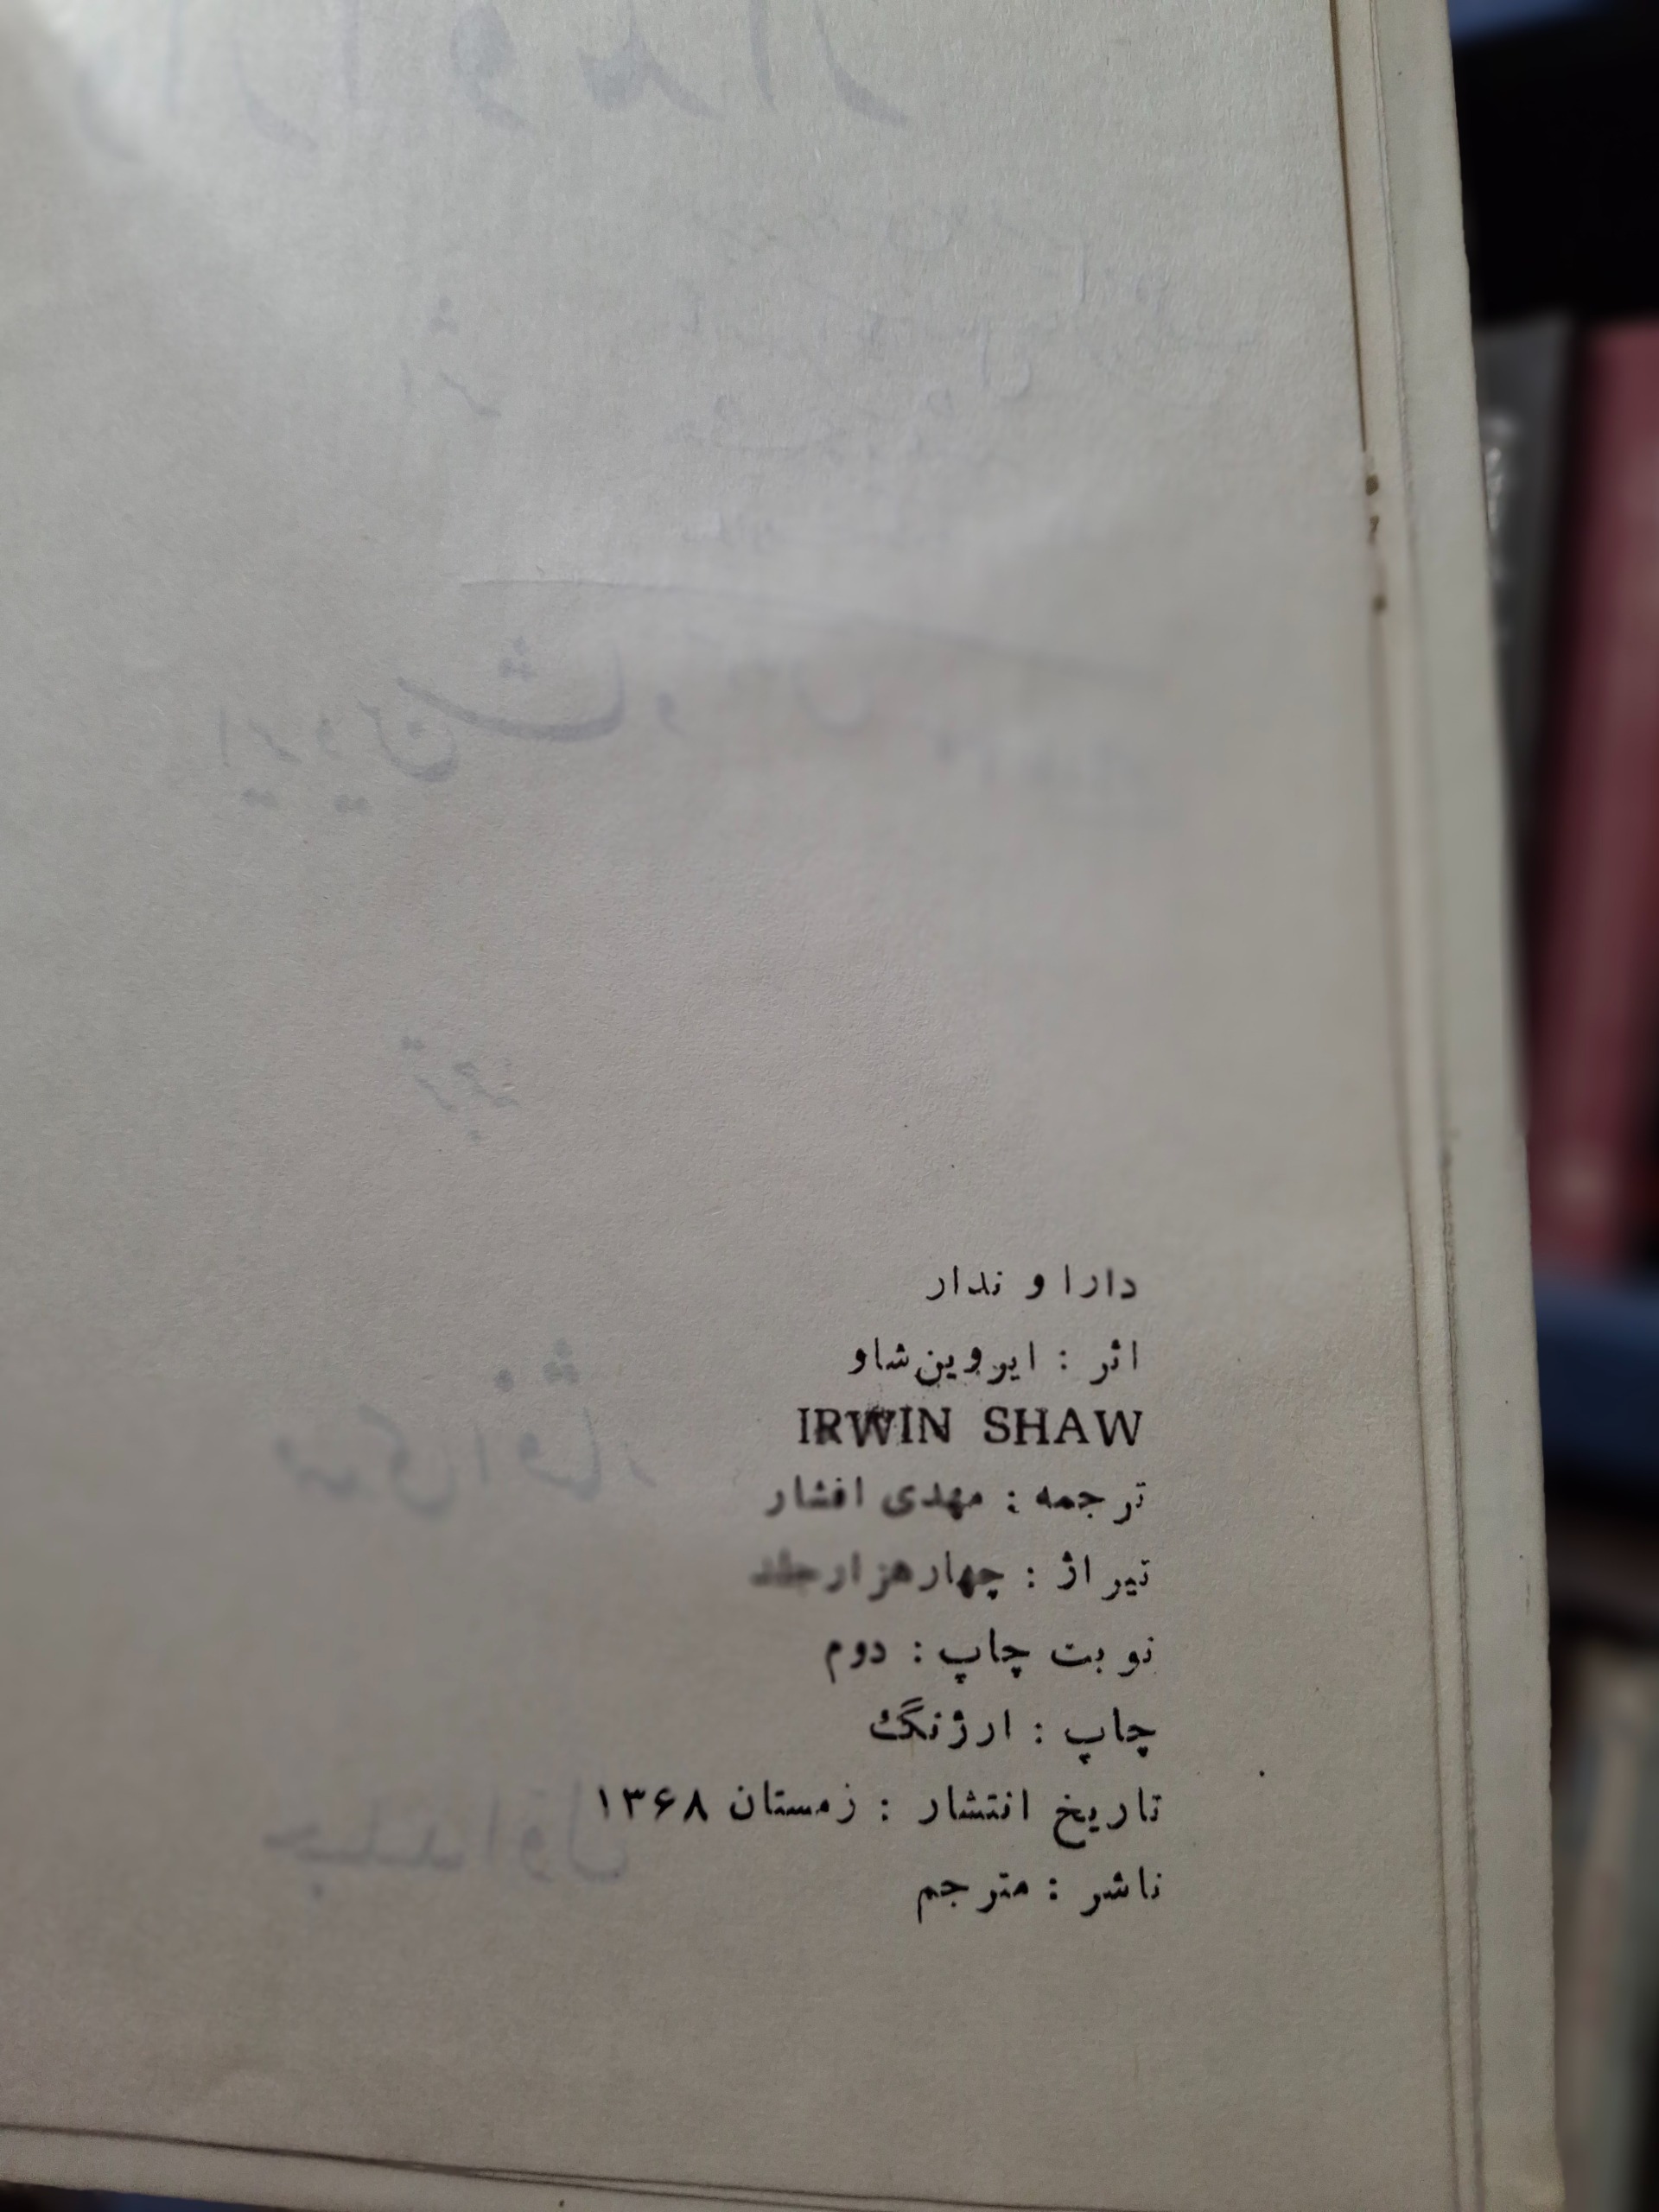 دارا و ندار
اثر : ایروین شاو
IRWIN SHAW
ترجمه : مهدی افشار
تیراژ : چهارهزارجلد
نوبت چاپ : دوم
چاپ : ارژنگ
تاریخ انتشار : زمستان ۱۳۶۸
ناشر : مترجم